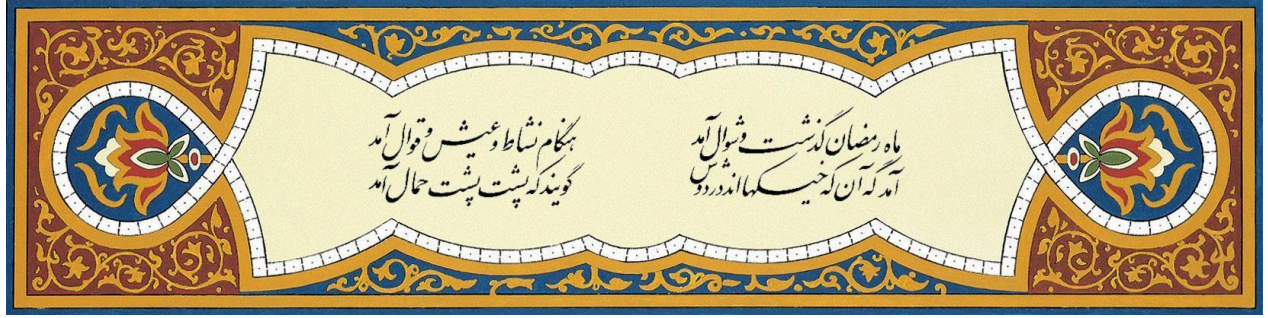 ماه رمضان گذشت و شوال آمد
هنگام نشاط و عیش و قوال آمد
آمد گه آن که خیکها اندر دوش
گویند که پشت پشت حمال آمد